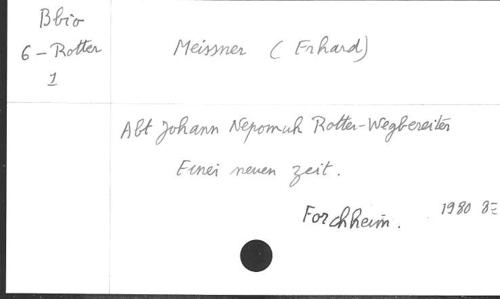 Bbio
6 - Rotter
1
Meissner (Erhard)
Abt Johann Nepomuk Rotter-Wegbereiter
Einei neuen zeit.
Forchheim. 1980 8=